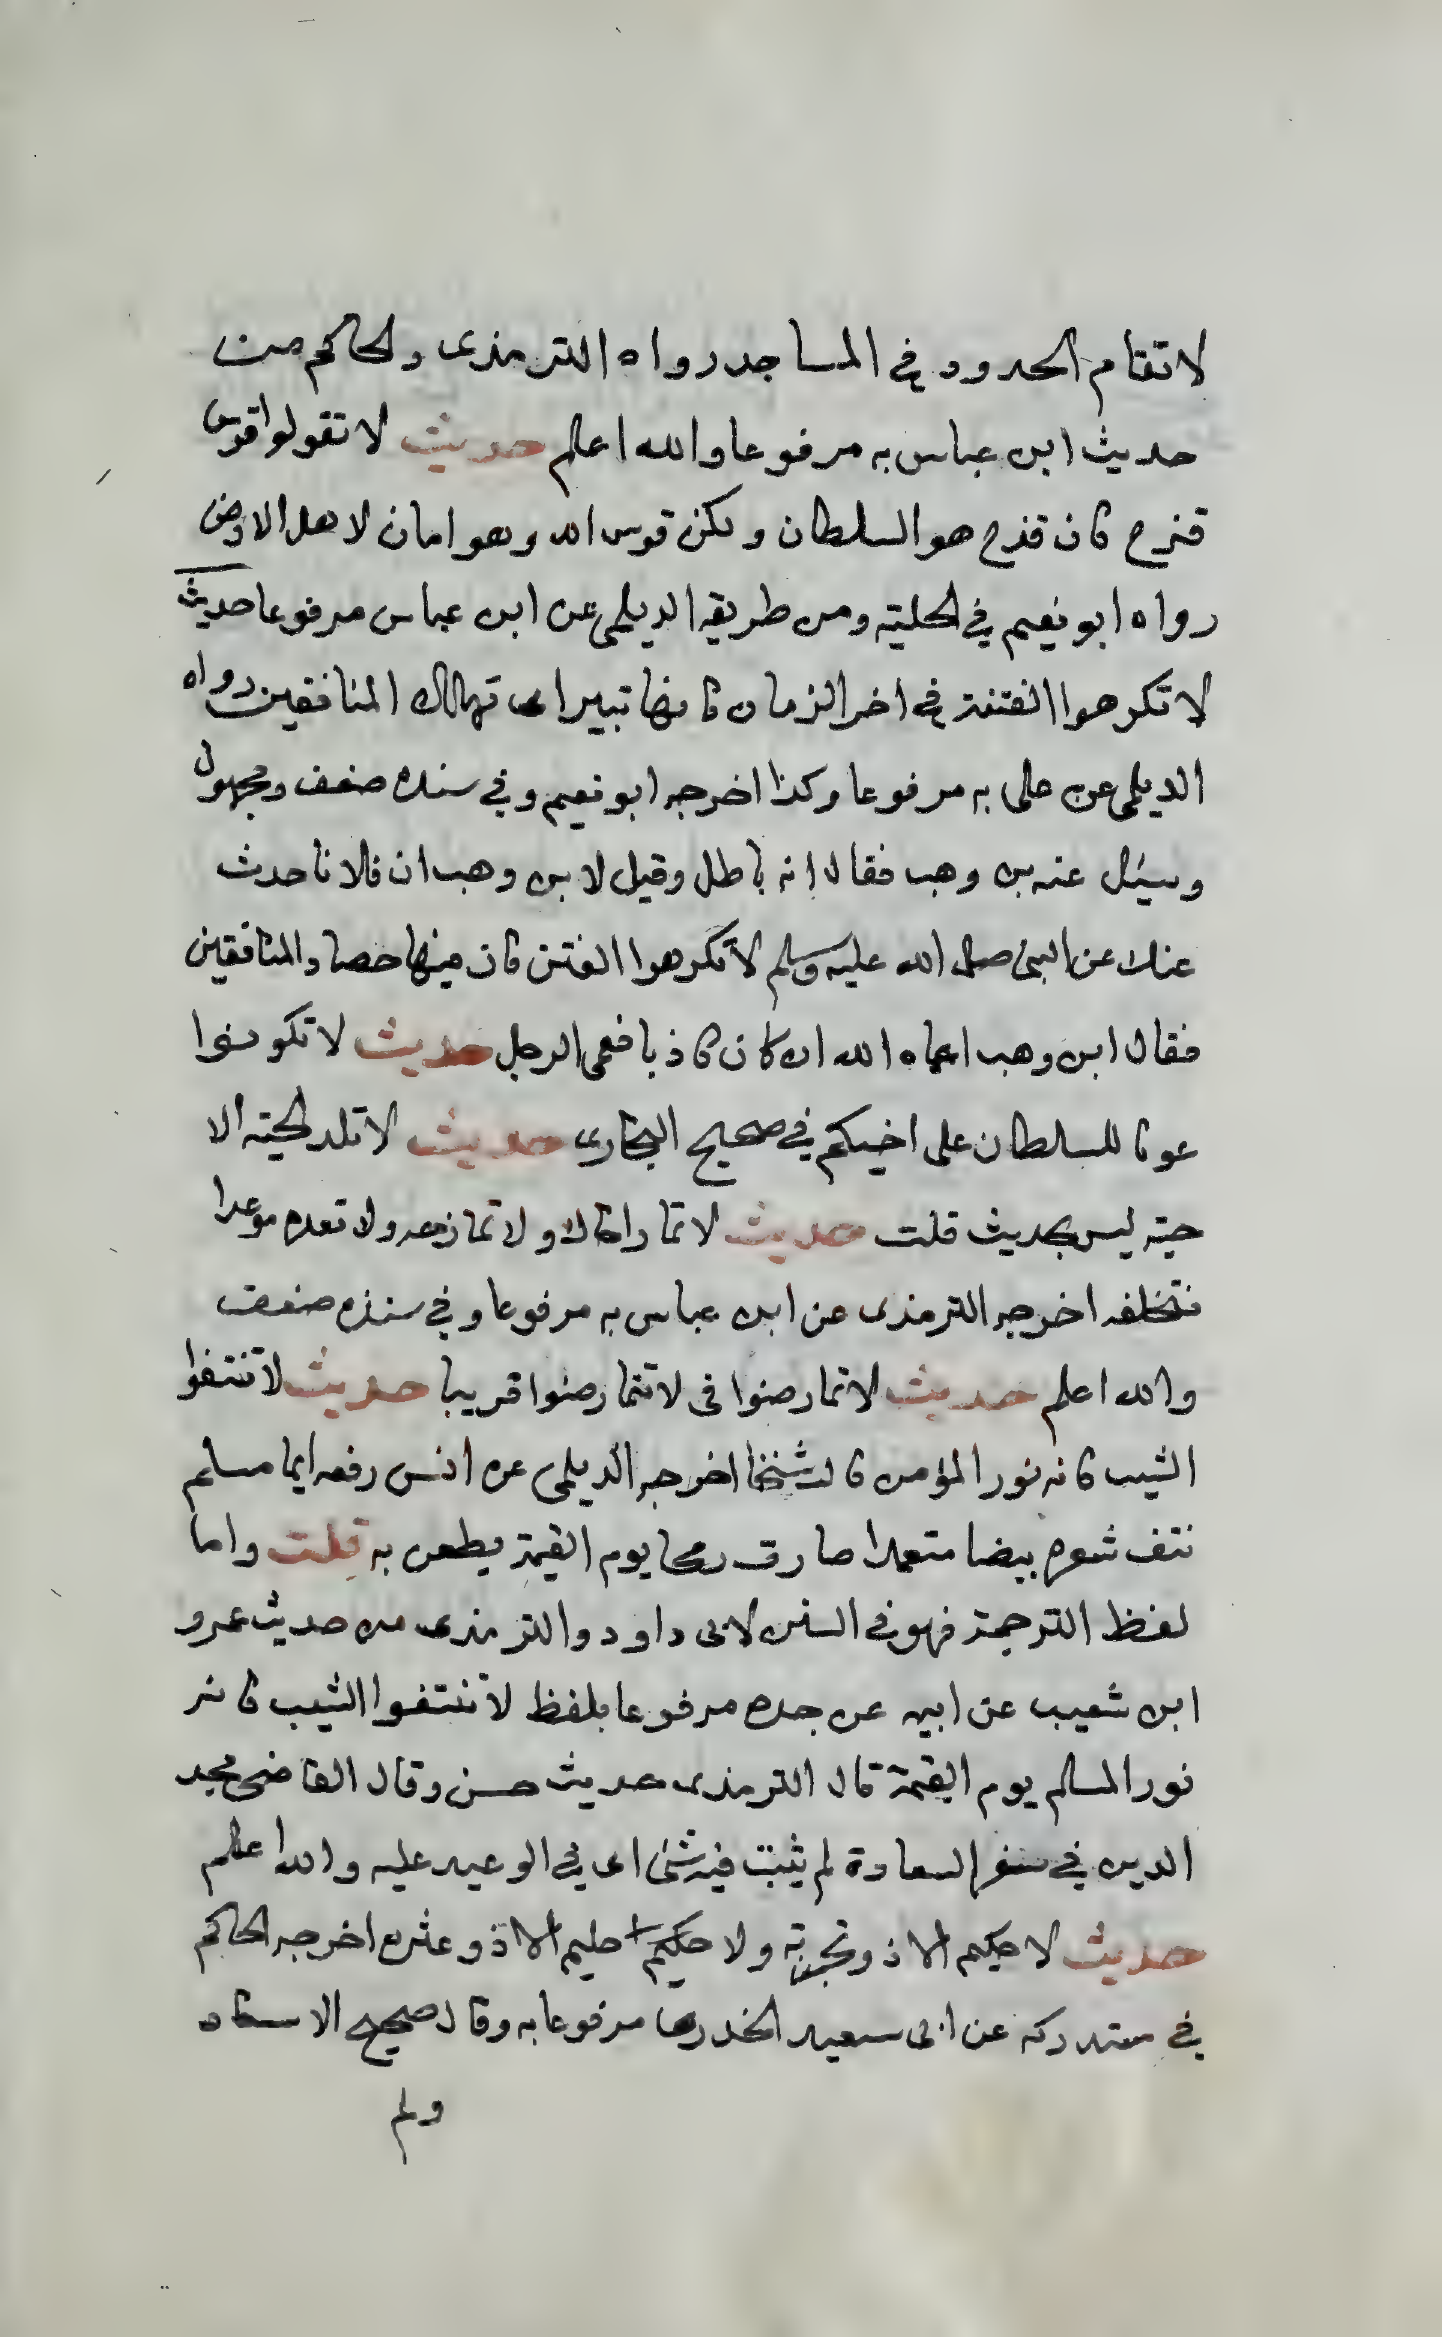 لا تقام الحدود في المساجد رواه الترمذى والحاكم من
حديث ابن عباس به مرفوعا والله اعلم حديث لا تقولوا قوس
قزح فان قزح هو السلطان ولكن قوس الله وهو امان لاهل الارض
رواه ابو نعيم في الحلية ومن طريقه الديلمى عن ابن عباس مرفوعا حديث
لا تكرهوا الفتنة في اخر الزمان فانها تبير اى تهالك المنافقين رواه
الديلمى عن على به مرفوعا وكذا اخرجه ابو نعيم وفي سنده ضعف ومجهول
وسيئل عنه بن وهب فقال انه باطل وقيل لابن وهب ان فلانا حدث
عنك عن النبى صلى الله عليه وسلم لا تكرهوا الفتن فان فيها حصاد المنافقين
فقال ابن وهب اعماه الله ان كان كاذبا فعمى الرجل حديث لا تكونوا
عونا للسلطان على اخيكم في صحيح البخارى حديث لا تلد الحية الا
حية ليس بحديث قلت حديث لا تمار اخاك ولا تمازحه ولا تعده موعدا
فتخلفه اخرجه الترمذى عن ابن عباس به مرفوعا وفي سنده ضعف
والله اعلم حديث لا تمارضوا في لا تتمارضوا قريبا حديث لا تنتفوا
الشيب فانه نور المؤمن قال شيخنا اخرجه الديلمى عن انس رفعه ايما مسلم
نتف شعره بيضا متعمدا صارت رمحا يوم القيمة يطعن به قلت واما
لفظ الترجمة فهو في السنن لابى داود والترمذى من حديث عمرو
ابن شعيب عن ابيه عن جده مرفوعا بلفظ لا تنتفوا الشيب فانه
نور المسلم يوم القيمة قال الترمذى حديث حسن وقال القاضى مجد
الدين في سفر السعادة لم يثبت فيه شئ اى في الوعيد عليه والله اعلم
حديث لا حكيم الا ذو تجربة ولا حكيم حليم الا ذو عثرة اخرجه الحاكم
في مستدركه عن ابى سعيد الخدرى مرفوعا به وقال صحيح الاسناد
ولم